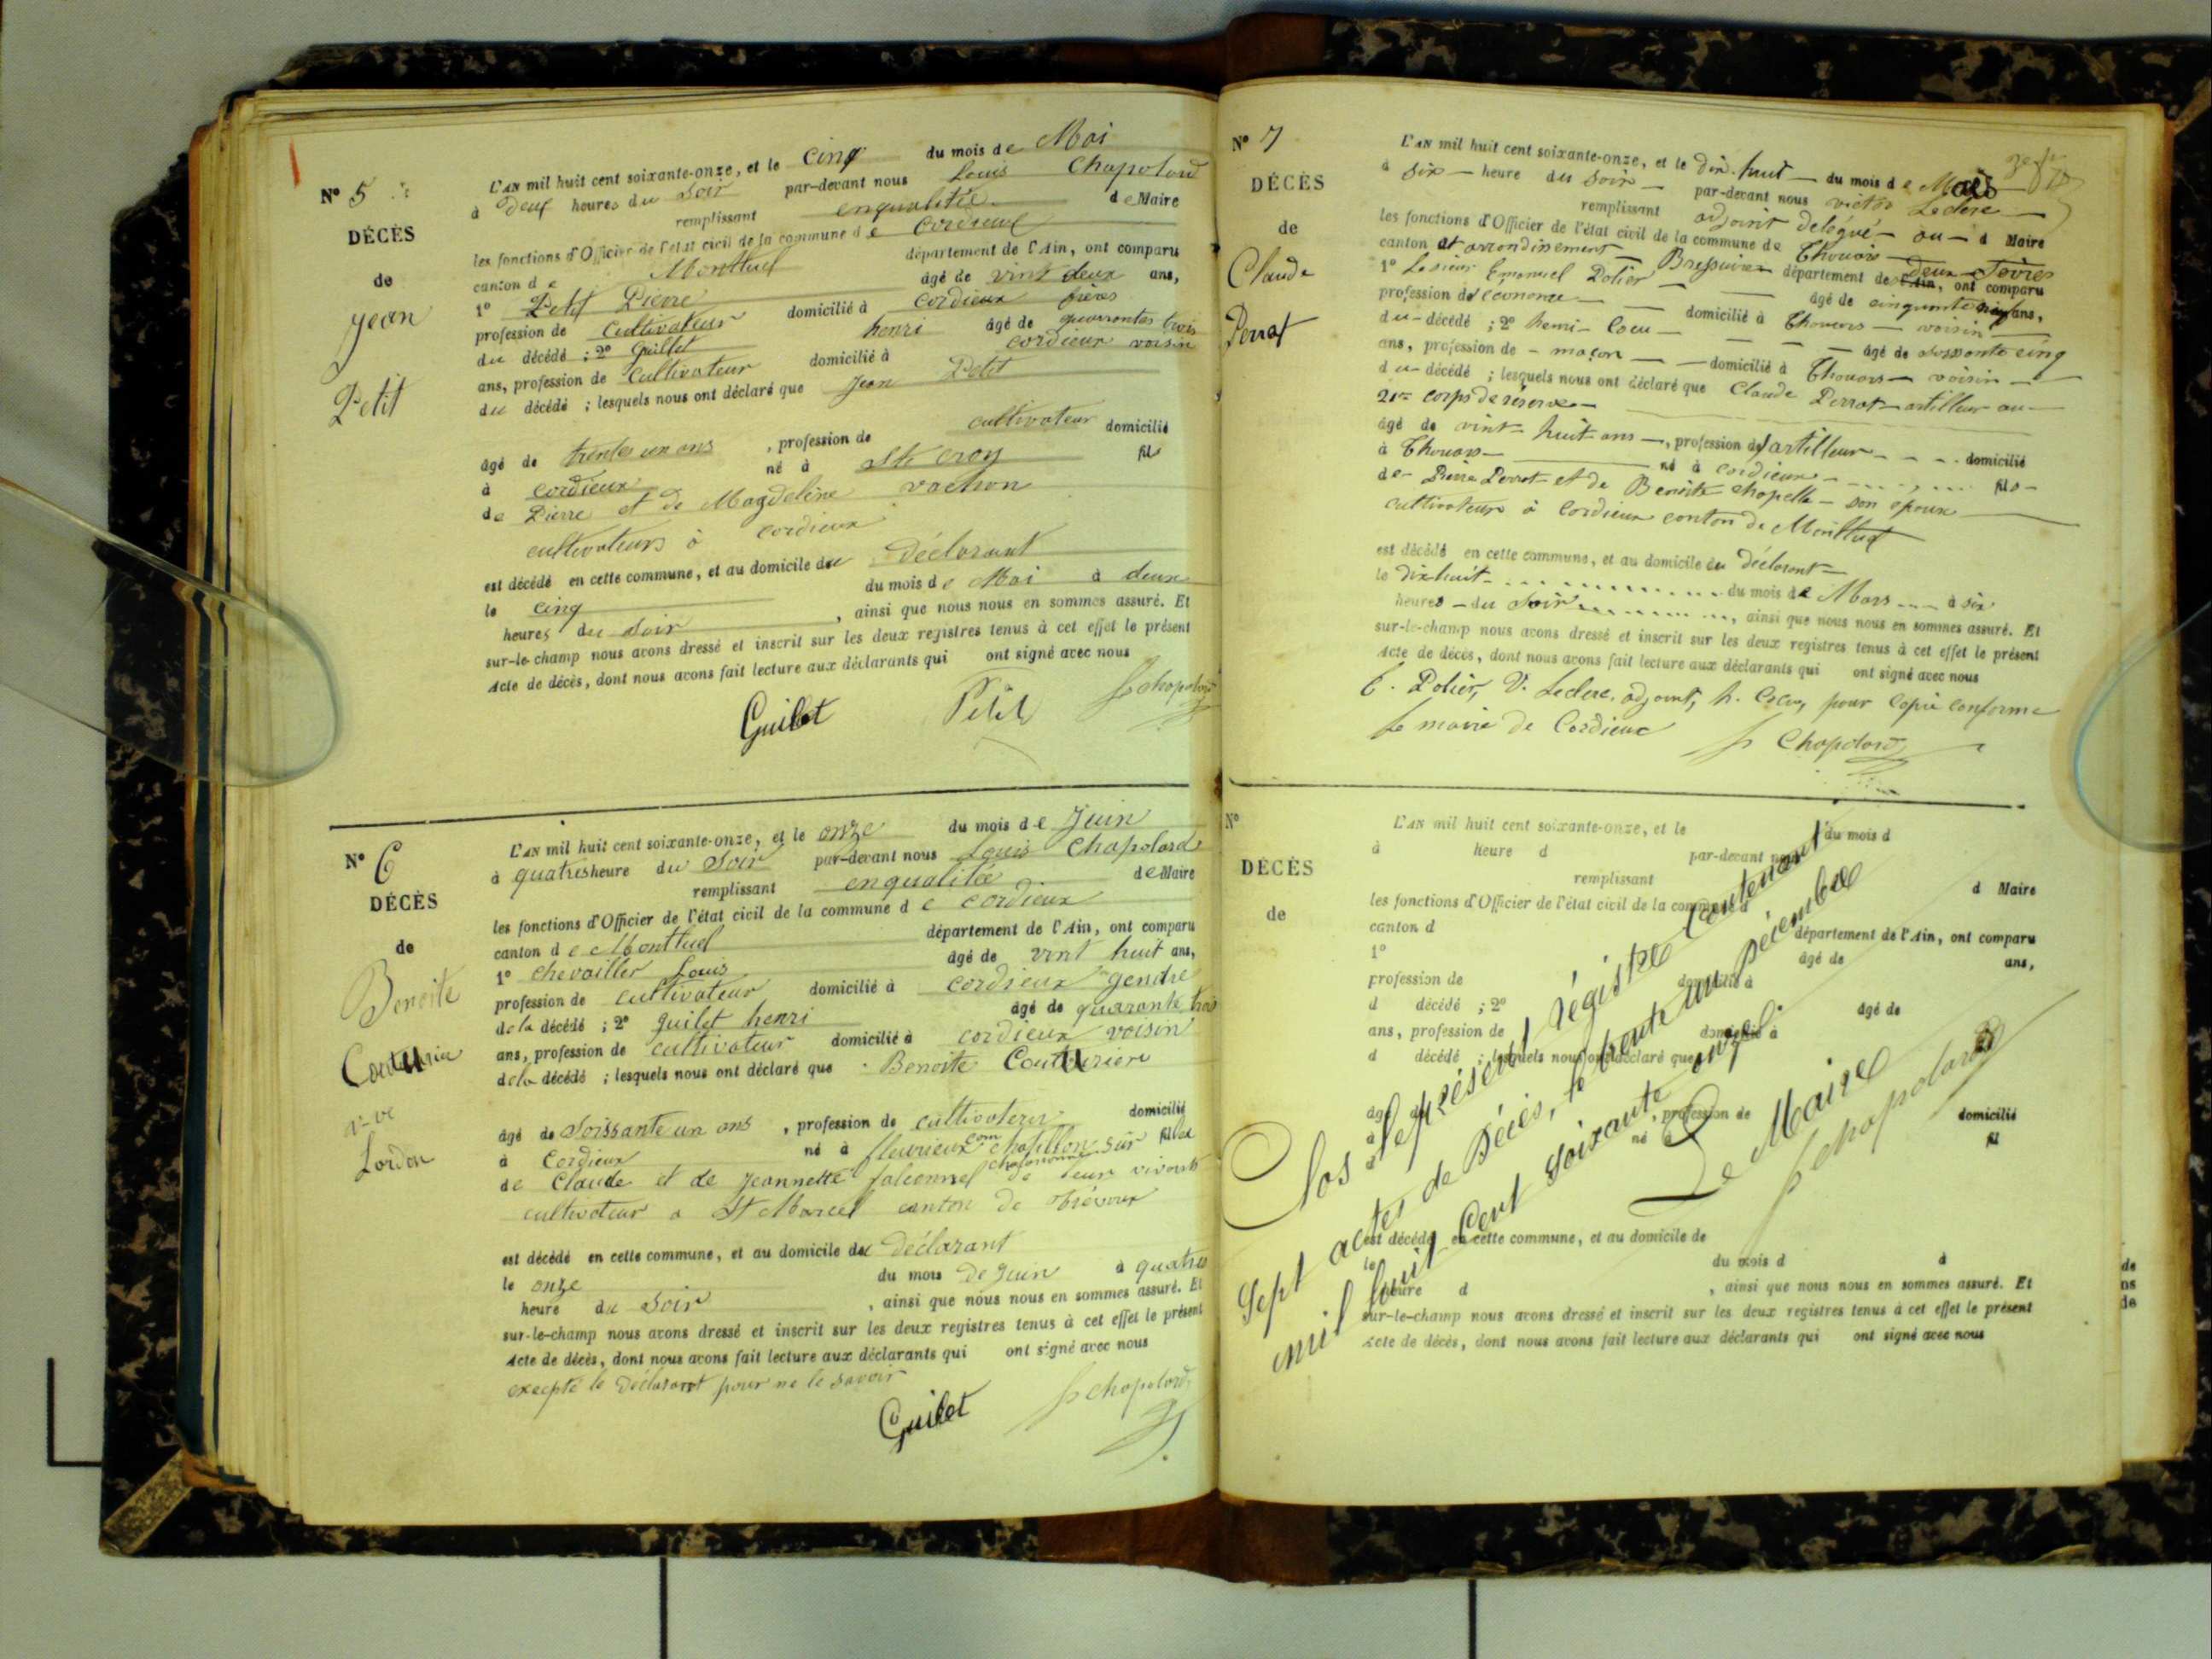 N° 5
DÉCÈS
de
jean
Petit
L'AN mil huit cent soixante-onze, et le cinq du mois de Mai
à deux heures du soir par-devant nous Louis Chapolard
remplissant enqualitée de Maire
les fonctions d'Officier de l'état civil de la commune de Cordieux
canton de Montluel département de l'Ain, ont comparu
1° Petit Pierre âgé de vint deux ans,
profession de Cultivateur domicilié à Cordieux frères
du décédé ; 2° Guillet henri âgé de quarrantes trois
ans, profession de Cultivateur domicilié à cordieux voisin
du décédé ; lesquels nous ont déclaré que Jean Petit
âgé de trentes un ans , profession de cultivateur domicilié
à cordieux né à Ste croy fils
de Pierre et de Magdeleine vachon
cultivateurs à cordieux
est décédé en cette commune, et au domicile du Déclarant
le cinq du mois de Mai à deux
heures du soir , ainsi que nous nous en sommes assuré. Et
sur-le-champ nous avons dressé et inscrit sur les deux registres tenus à cet effet le présent
Acte de décès, dont nous avons fait lecture aux déclarants qui ont signé avec nous
Guilet Petit Chapolard
N° 6
DÉCÈS
de
Benoite
Couturier
v-ve
Lordon
L'AN mil huit cent soixante-onze, et le onze du mois de Juin
à quatres heure du Soir par-devant nous Louis Chapolard
remplissant enqualitée de Maire
les fonctions d'Officier de l'état civil de la commune de cordieux
canton de Montluel département de l'Ain, ont comparu
1° chevailler Louis âgé de vint huit ans,
profession de cultivateur domicilié à cordieux gendre
de la décédé ; 2° guilet henri âgé de quarante trois
ans, profession de cultivateur domicilié à cordieux voisin
de la décédé ; lesquels nous ont déclaré que Benoite Couturiere
âgé de soissante un ans , profession de cultivateur domicilié
à Cordieux né à fleurieux com chatillon sur fille
chalaronne
de Claude et de Jeannette falconnet de leur vivant
cultivateur a St Marcel canton de trévoux
est décédé en cette commune, et au domicile du Déclarant
le onze du mois de Juin à quatres
heure du Soir , ainsi que nous nous en sommes assuré. Et
sur-le-champ nous avons dressé et inscrit sur les deux registres tenus à cet effet le présent
Acte de décès, dont nous avons fait lecture aux déclarants qui ont signé avec nous
excepté le Déclarant pour ne le savoir
Guilet Chapolard
N° 7
DÉCÈS
de
Claude
Perrat
L'AN mil huit cent soixante-onze, et le dix-huit du mois de Mars
à six heure du soir par-devant nous victor Leclere
remplissant adjoint délégué au d Maire
les fonctions d'Officier de l'état civil de la commune de Thouars
canton et arrondissement Bressuire département de l'Ain, ont comparu
deux-Sèvres
1° Lesieur Emanuel Polier âgé de cinquante ans,
profession d'économe domicilié à Thouars voisin
du décédé ; 2° henri Cocu âgé de soissante cinq
ans, profession de maçon domicilié à Thouars voisin
du décédé ; lesquels nous ont déclaré que Claude Perrat artilleur au
corps de réserve
âgé de vint huit ans , profession d'artilleur domicilié
à Thouars né à cordieux fils
de Pierre Perrot et de Benoite chapelle son epoux
cultivateurs à Cordieux conton de Montluel
est décédé en cette commune, et au domicile du déclarant
le dix huit du mois de Mars à six
heures du soir , ainsi que nous nous en sommes assuré. Et
sur-le-champ nous avons dressé et inscrit sur les deux registres tenus à cet effet le présent
Acte de décès, dont nous avons fait lecture aux déclarants qui ont signé avec nous
E. Polier, V. Leclere, adjoint, h. Cocu, pour copie conforme
Le maire de Cordieux
Chapolard
N°
DÉCÈS
de
L'AN mil huit cent soixante-onze, et le du mois d
à heure d par-devant nous
remplissant d Maire
les fonctions d'Officier de l'état civil de la commune d
canton d département de l'Ain, ont comparu
1° âgé de ans,
profession de domicilié à
d décédé ; 2° âgé de
ans, profession de domicilié à
d décédé ; lesquels nous ont déclaré que
âgé de , profession de domicilié
à né à fil
d
est décédé en cette commune, et au domicile de
le du mois d à
heure d , ainsi que nous nous en sommes assuré. Et
sur-le-champ nous avons dressé et inscrit sur les deux registres tenus à cet effet le présent
Acte de décès, dont nous avons fait lecture aux déclarants qui ont signé avec nous
Clos le présent régistre contenant
Sept actes de Décès, le trente un Décembre
mil huit Cent soixante onze.
Le Maire
Chapolard
de
ns
de